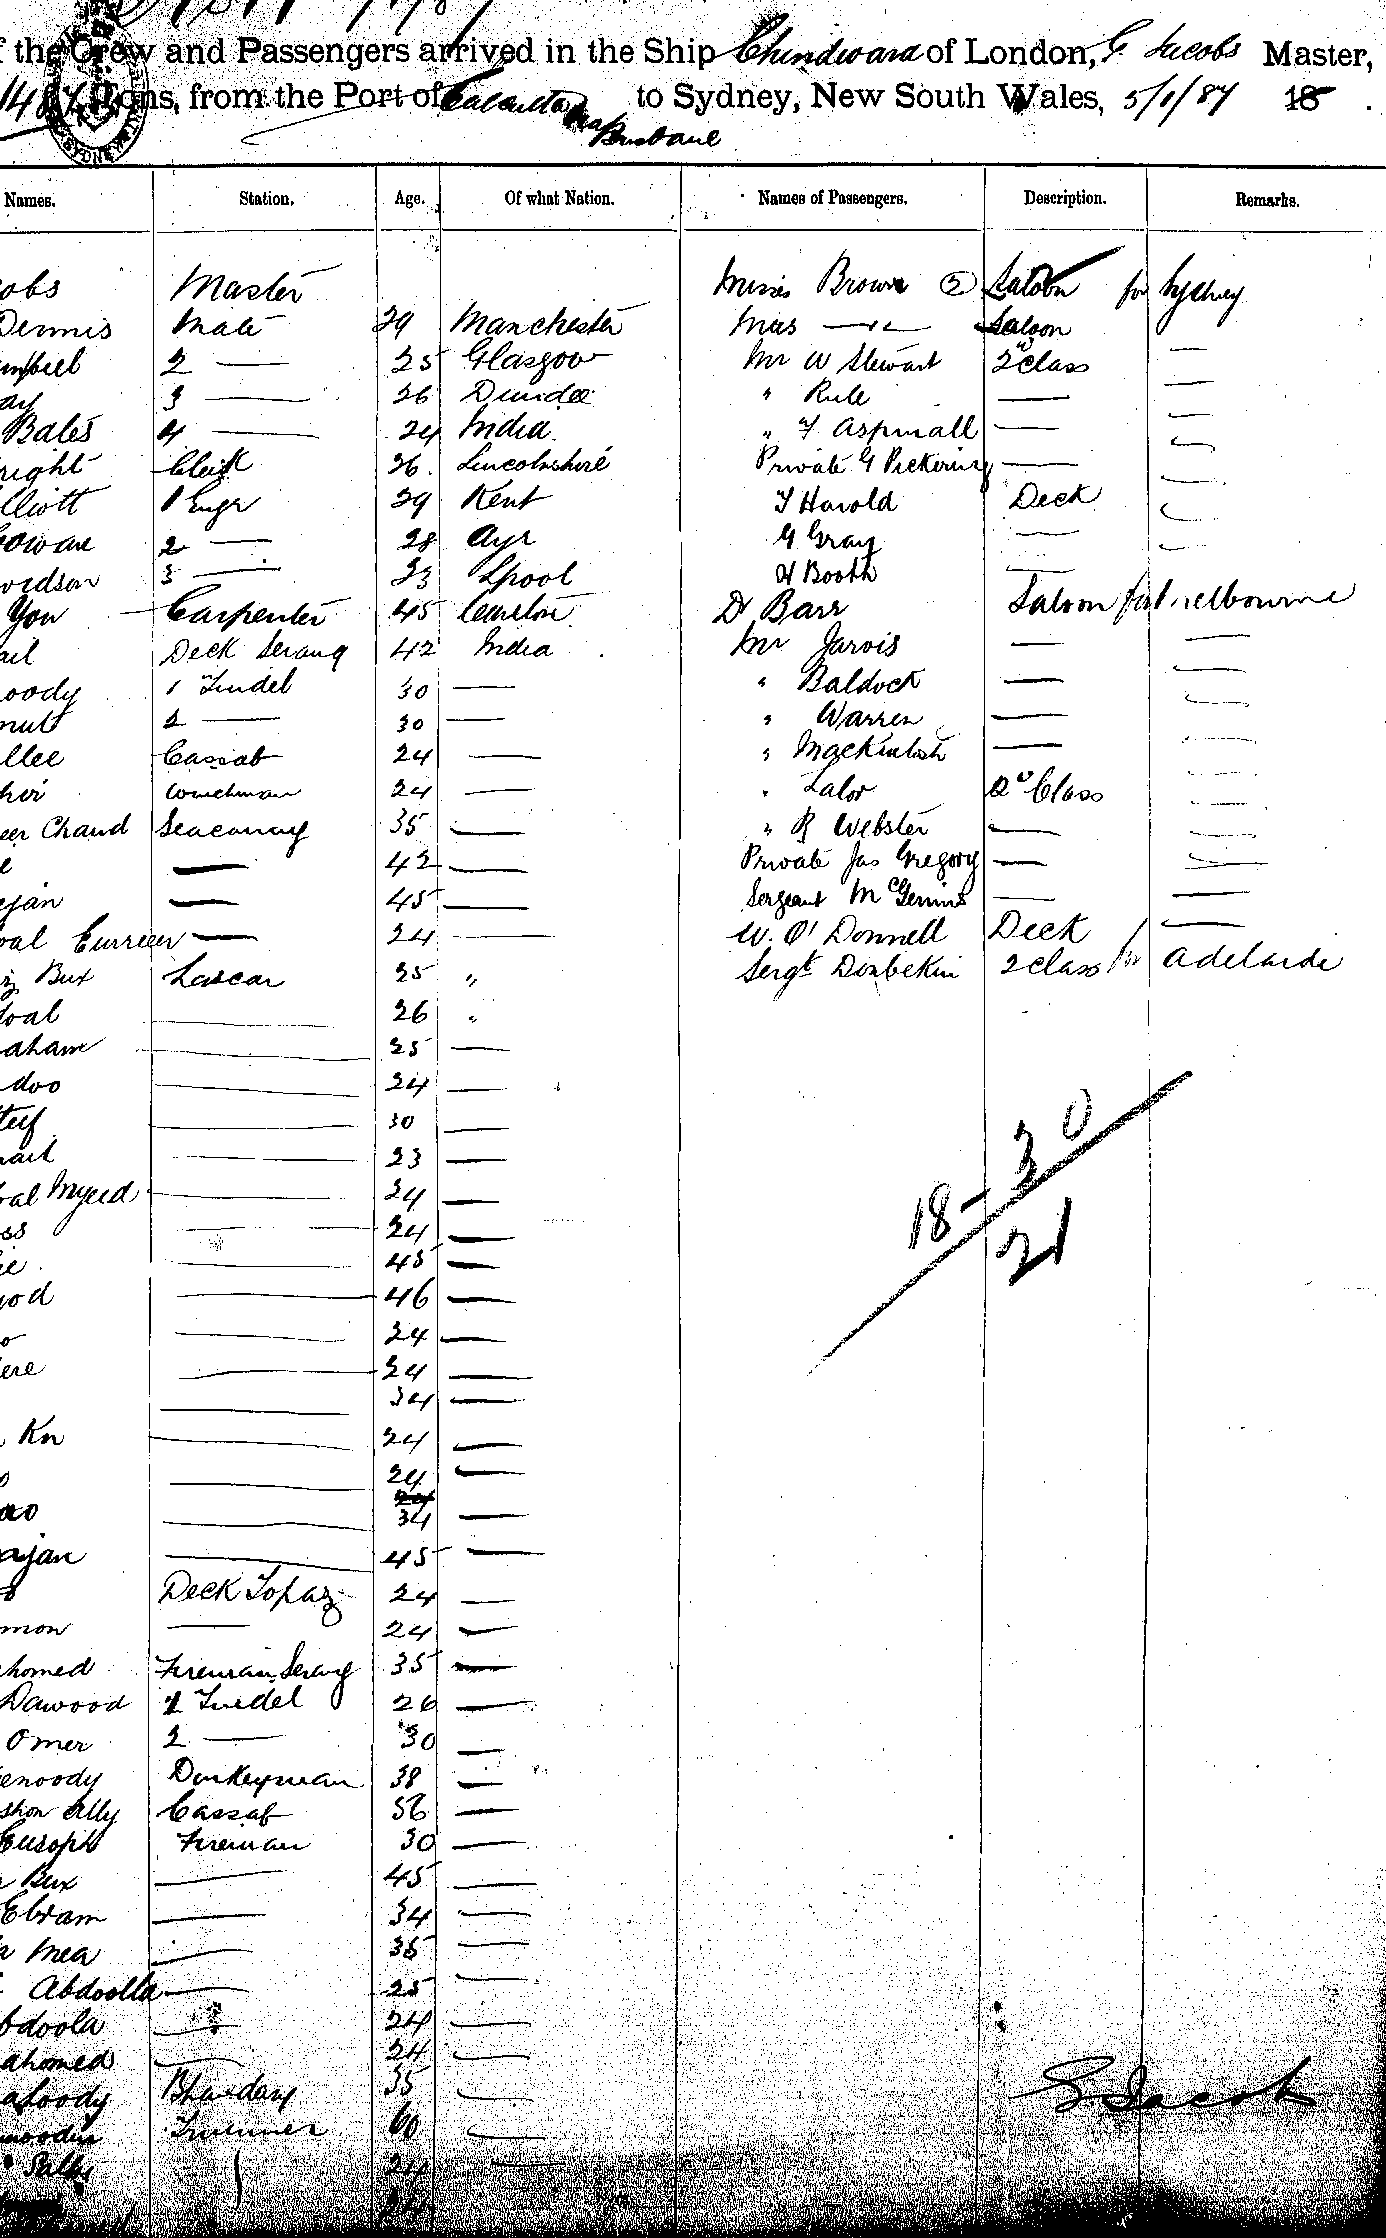 f the Crew and Passengers arrived in the Ship Chindwara of London, G Jacobs Master,
Tons, from the Port of Calcutta via Brisbane to Sydney, New South Wales, 5/1/87 18 .
Names. Station. Age. Of what Nation. Names of Passengers. Description. Remarks.
obs Master Misses Brown 2 Saloon for Sydney
Dennis Mate 29 Manchester Saloon
mpbell 2 — 25 Glasgow Mr W Stewart 2d class —
ay 3 — 26 Dundee " Rule — —
Bales 4 — 24 India " F Aspinall — —
right Clerk 26 Lincolnshire Private G Pickering — —
lliott 1 Engr 29 Kent T Harold Deck —
owan 2 — 28 Ayr G Gray — —
vidson 3 — 23 Lpool H Booth —
You Carpenter 45 Canton Dr Barr Saloon for Melbourne
ail Deck Serang 42 India Mr Jarvis — —
oody 1 Tindel 30 — " Baldock — —
mut 2 — 30 — " Warren — —
llee Cassab 24 — " Mackintosh — —
her Winchman 24 — " Lalor 2d Class —
eer Chand Seacunny 35 — " R Webster — —
e — 42 — Private Jas Gregory — —
ejan — 45 — Sergeant — —
oal Curreem — 24 — W. O'Donnell Deck —
Bux Lascar 25 " Sergt 2 class for Adelaide
oal — 26 "
aham — 25 —
doo — 24 —
— 30 —
mail — 23 —
oal Myeed — 24 —
ss — 24 —
ie — 45 —
ood — 46 —
o — 24 —
ere — 24 —
— 34 —
Kn — 24 —
o — 24 —
ao — 34 —
ajan — 45 —
Deck Topaz 24 —
mon — 24 —
homed Fireman Serang 35 —
Dawood 1 Tindel 26 —
Omer 2 — 30 —
enoody Donkeyman 38 —
Ally Cassab 56 —
Eusoph Fireman 30 —
Bux — 45 —
Ebram — 34 —
a Mea — 35 —
Abdoolla — 25 —
bdoola — 24 —
ahomed — 24 —
afoody Bhandary 35 —
mooden Trimmer 60 —
24 —
18 – 30
21
G Jacobs